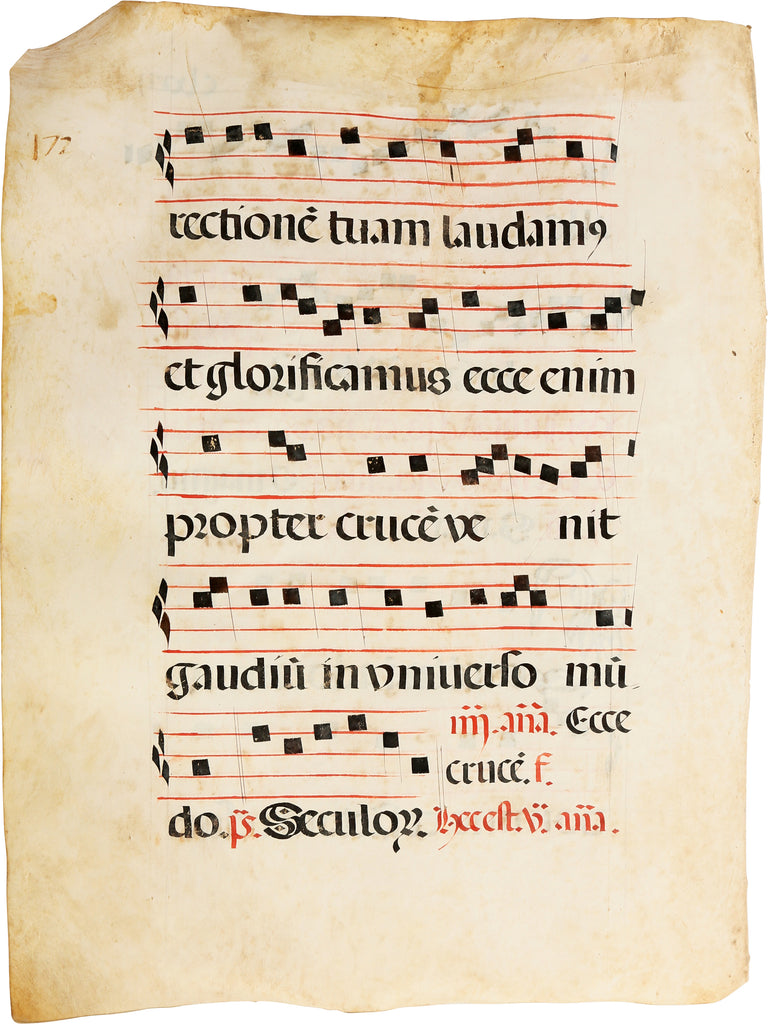 177
rectionē tuam laudamꝰ
et glorificamus ecce enim
propter crucē ve nit
gaudiū in vniuerso mū
iij. aña. Ecce
crucē. f.
do. ps. Seculoꝝ. hec est. v. aña.